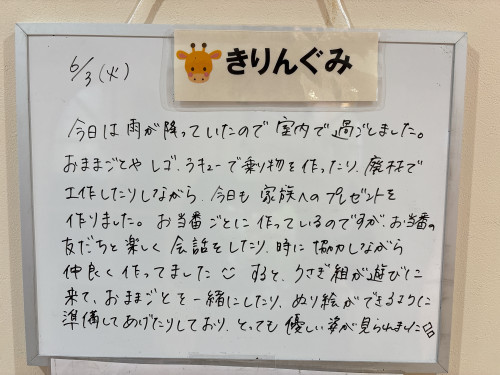 きりんぐみ
6/3(火)
今日は雨が降っていたので室内で過ごしました。
おままごとや レゴ、ラキューで乗り物を作ったり、廃材で
工作したりしながら、今日も 家族へのプレゼントを
作りました。お当番ごとに作っているのですが、お当番の
友だちと楽しく 会話をしたり、時に 協力しながら
仲良く作ってました すると、うさぎ組が遊びに
来て、おままごとを一緒にしたり、ぬり絵ができるように
準備してあげたりしており、とっても 優しい姿が見られました